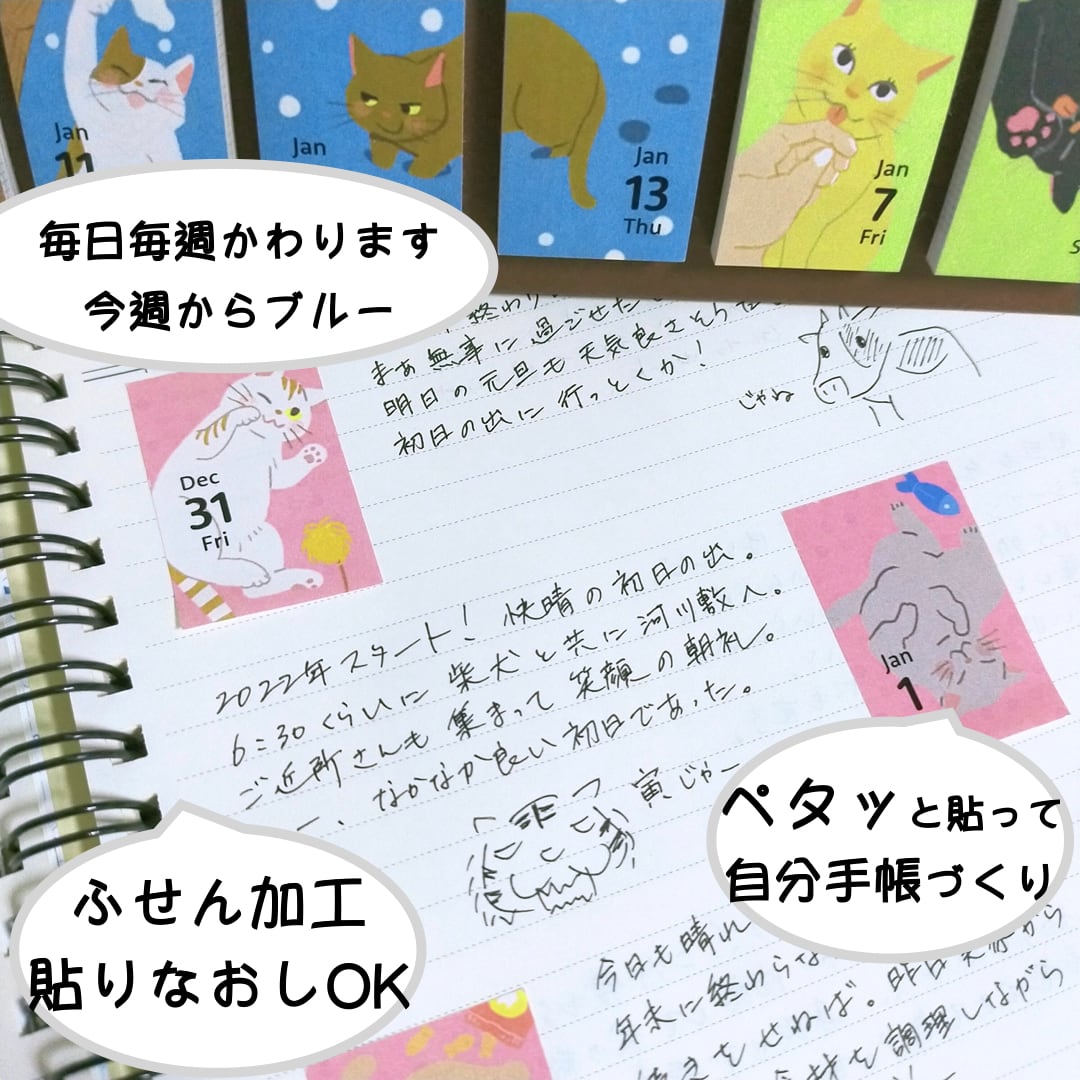 Jan
11
Jan
Jan
13
Thu
Jan
7
Fri
毎日毎週かわります
今週からブルー
終わり
まあ無事に過ごせた
明日の元旦も天気良さそう
初日の出に行っとくか!
じゃね
Dec
31
Fri
2022年スタート! 快晴の初日の出。
6:30くらいに柴犬と共に河川敷へ。
ご近所さんも集まって笑顔の朝礼。
なかなか良い初日であった。
Jan
1
寅じゃー
ペタッと貼って
自分手帳づくり
ふせん加工
貼りなおしOK
今日も晴れ
年末に終わらな
をせねば。昨日
を調理しながら